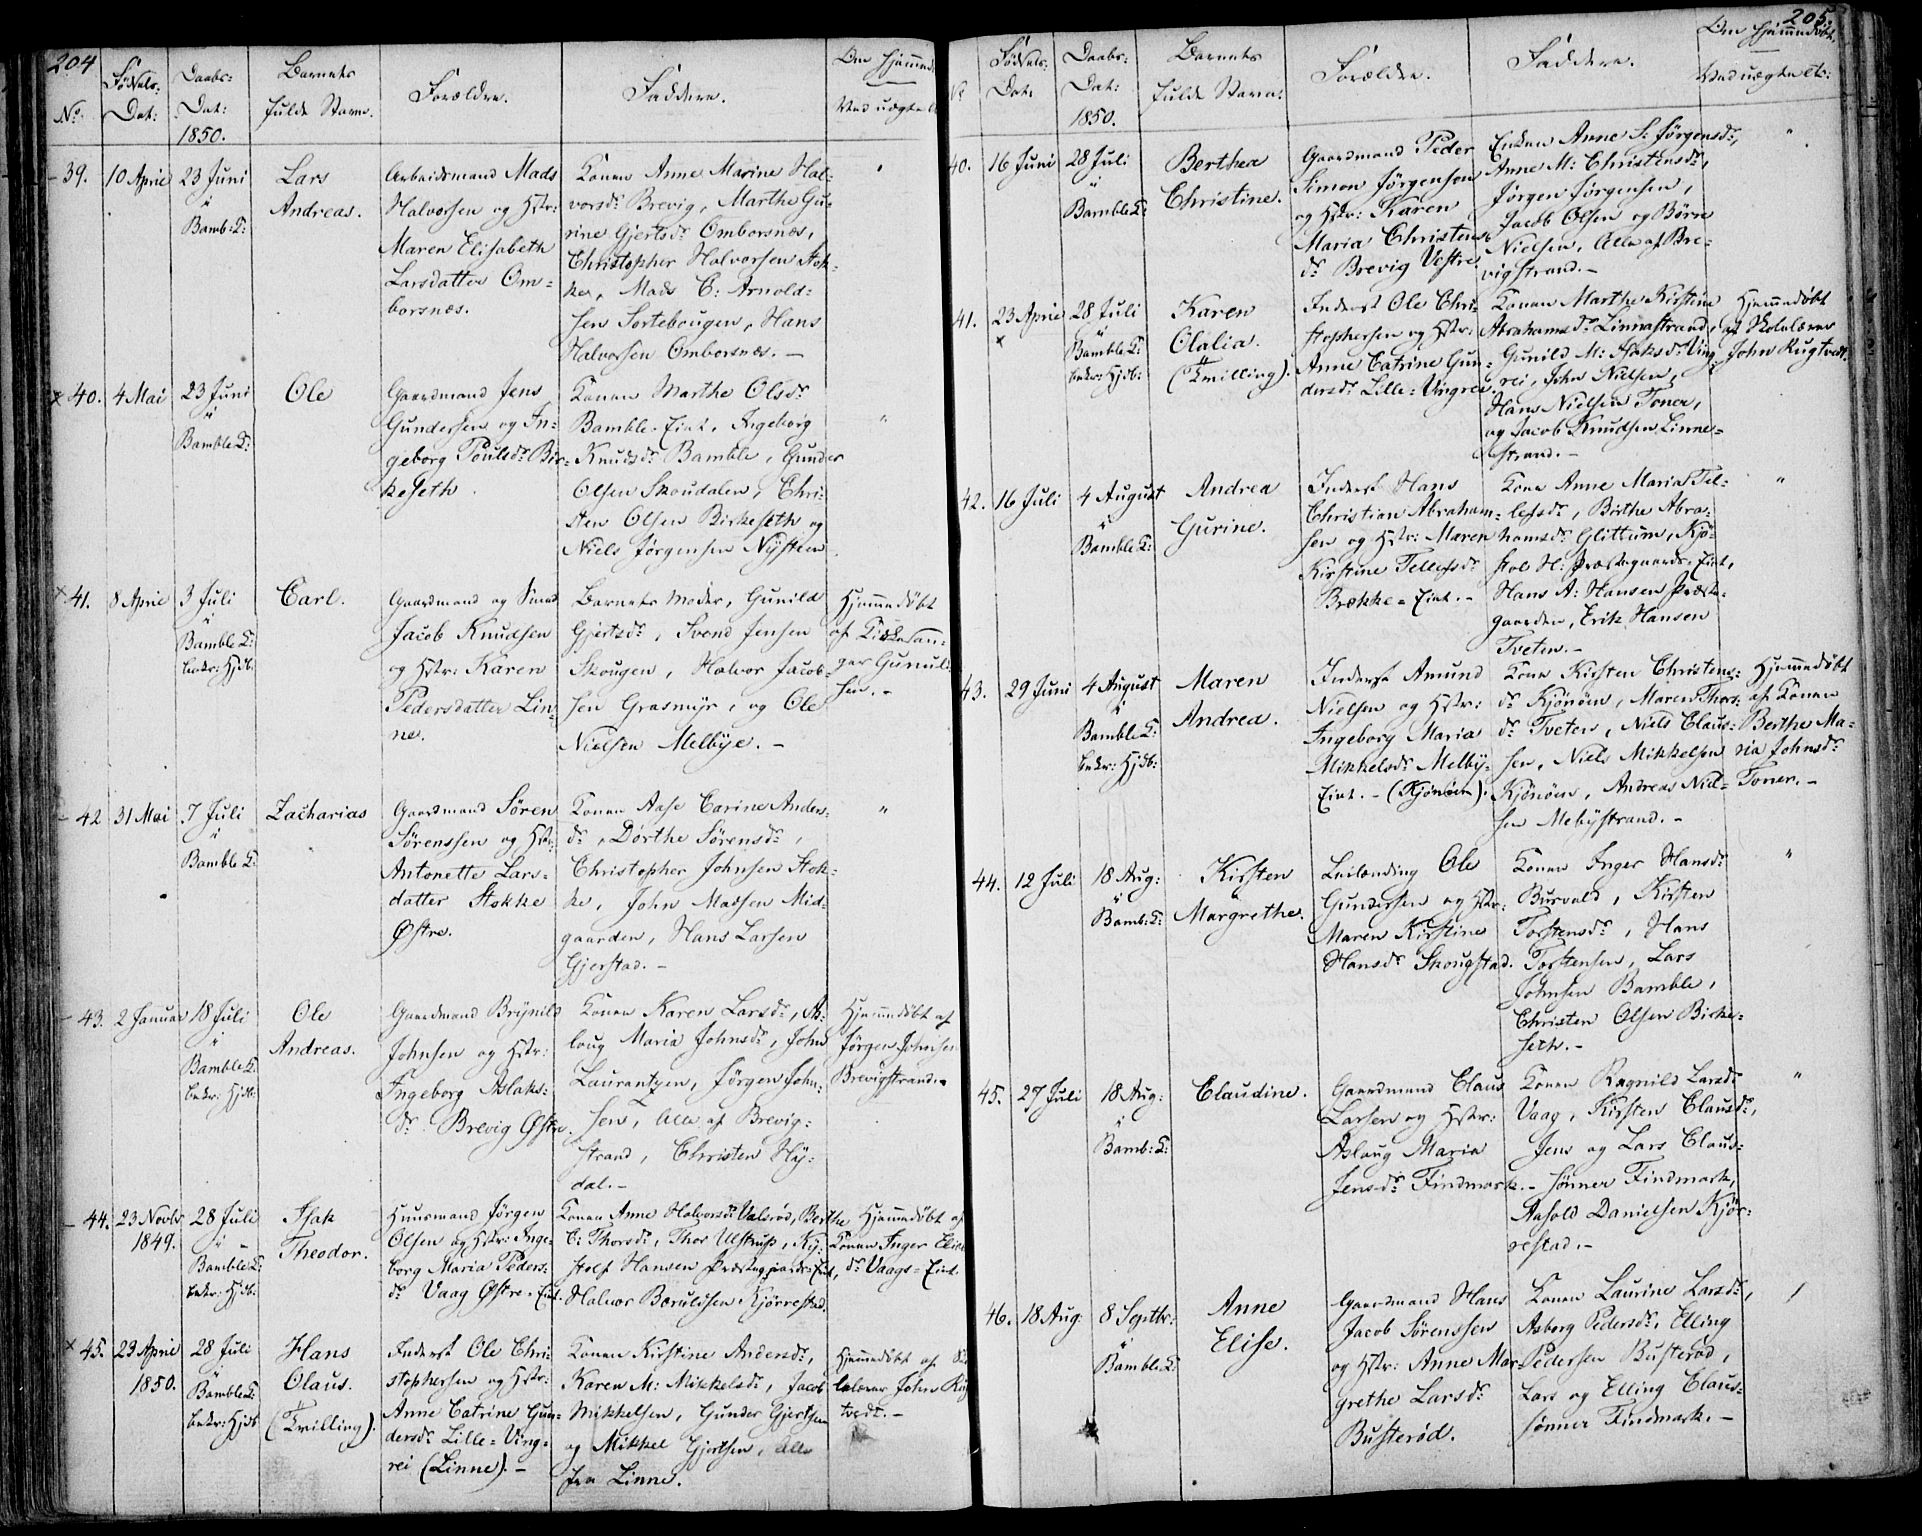 204
No.
Fødsels-
Dat:
Daabs-
Dat:
1850.
Barnets
fulde Navn.
Forældre.
Faddere.
Om hjemmed.
Ved uægte
39.
10 April
23 Juni
i
Bamb: K:
Lars
Andreas.
Arbeidsmand Mads
Halvorsen og Hstr:
Maren Elisabeth
Larsdatter Om-
borsnæs.
Konen Anne Marine Hal-
vorsdr Brevig, Marthe Gu-
rine Gjertsdr Omborsnæs,
Christopher Halvorsen Stok-
ke, Mads C: Arnold-
sen Sortebougen, Hans
Halvorsen Omborsnæs. —
"
× 40.
4 Mai
23 Juni
i
Bamble K:
Ole
Gaardmand Jens
Gundersen og In-
geborg Poulsdr Bir-
keseth.
Konen Marthe Olsdr
Bamble-Eiet, Ingeborg
Knudsdr Bamble, Gunder
Olsen Skoudalen, Chri-
sten Olsen Birkeseth og
Niels Jørgensen Nysteen.
"
× 41.
8 April
3 Juli
i
Bamble K:
bekr: Hjdb:
Carl.
Gaardmand og Smed
Jacob Knudsen
og Hstr: Karen
Pedersdatter Lin-
ne.
Barnets Moder, Gunild
Gjertsdr, Svend Jensen
Skougen, Halvor Jacob-
sen Grasmyr, og Ole
Nielsen Melbye. —
Hjemmedøbt
af Kirkesan-
ger Gunul-
sen. —
42
31 Mai
7 Juli
i
Bamble K:
Zacharias
Gaardmand Søren
Sørenssen og Hstr:
Antonette Lars-
datter Stokke
Østre.
Konen Aase Carine Anders-
dr, Dorthe Sørensdr,
Christopher Johnsen Stok-
ke, John Madsen Mid-
gaarden, Hans Larsen
Gjerstad. —
"
43.
2 Januar
18 Juli
i
Bamble K:
bekr: Hjdb:
Ole
Andreas.
Gaardmand Brynild
Johnsen og Hstr:
Ingeborg Aslaks-
dr Brevig Østre.
Konen Karen Larsdr, As-
laug Maria Johnsdr, John
Laurantzen, Jørgen John-
sen, Alle af Brevig-
strand, Christen Hy-
dal. —
Hjemmedøbt af
Jørgen Johnsen
Brevigstrand. —
44.
23 Novbr
1849.
28 Juli
i
Bamble K:
bekr: Hjdb:
Isak
Theodor.
Huusmand Jørgen
Olsen og Hstr: Inge-
borg Maria Peders-
dr Vaag Østre-Eiet.
Konen Anne Halvorsdr Valsrød, Berthe
C: Thorsdr, Thor Ulstrup, Ky-
stolf Hansen Præstegaards-Eiet,
Halvor Beruldsen Kjørrestad.
Hjemmedøbt af
Konen Inger
dr Vaags-Eiet.
× 45.
23 April
1850.
28 Juli
i
Bamble K:
bekr: Hjdb
Hans
Olaus.
(Tvilling).
Inderst Ole Chri-
stophersen og Hstr:
Anne Catrine Gun-
dersdr Lille-Ving-
rei (Linne). —
Konen Kirstine Andersdr,
Karen M: Mikkelsdr, Jacob
Mikkelsen, Gunder Gjertsen
og Mikkel Gjertsen, alle
fra Linne.
Hjemmedøbt af
lelærer John Rug
tvedt. —
205.
No
Fødsels-
Dat:
Daabs-
Dat:
1850.
Barnets
fulde Navn.
Forældre.
Faddere.
Om hjemmedøbt.
Ved uægte etc:
40.
16 Juni
28 Juli
i
Bamble K:
Berthea
Christine.
Gaardmand Peder
Simon Jørgensen
og Hstr: Karen
Maria Christens-
dr Brevig Vestre.
Enken Anne S: Jørgensdr,
Anne M: Christensdr,
Jørgen Jørgensen,
Jacob Olsen og Børre
Nielsen, Alle af Bre-
vigstrand. —
"
41.
×
23 April
28 Juli
i
Bamble K:
bekr: Hjdb:
Karen
Olalia.
(Tvilling).
Inderst Ole Chri-
stophersen og Hstr:
Anne Catrine Gun-
dersdr Lille-Vingrei.
Konen Marthe Kirstine
Abrahamsdr Linnestrand,
Gunild M: Isaksdr Ving-
rei, John Nielsen,
Hans Nielsen Toner,
og Jacob Knudsen Linne-
strand. —
Hjemmedøbt
af Skolelærer
John Rugtvedt.
42.
16 Juli
4 August
i
Bamble K:
Andrea
Gurine.
Inderst Hans
Christian Abraham-
sen og Hstr: Maren
Kirstine Tellefsdr
Brække-Eiet. —
Kone Anne Maria Tel-
lefsdr, Birthe Abra-
hamsdr Glittum, Kjø-
stol H: Præstegaards-Eiet,
Hans A: Hansen Præste-
gaarden, Erik Hansen
Tveten. —
"
43.
29 Juni
4 August
i
Bamble K:
bekr: Hjdb:
Maren
Andrea.
Inderst Amund
Nielsen og Hstr:
Ingeborg Maria
Mikkelsdr Melby-
Eiet. — (Kjønøen).
Kone Kirsten Christens-
dr Kjønøen, Maren Thors-
dr Tveten, Niels Claus-
sen, Niels Mikkelsen
Kjønøen, Andreas Niel-
sen Mebystrand. —
Hjemmedøbt
af Konen
Berthe Ma-
ria Johnsdr
Toner. —
44.
12 Juli
18 Aug:
i
Bamb: K:
Kirsten
Margrethe.
Leilænding Ole
Gundersen og Hstr:
Maren Kirstine
Hansdr Skougstad.
Konen Inger Hansdr
Burvald, Kirsten
Torstensdr, Hans
Torstensen, Lars
Johnsen Bamble,
Christen Olsen Birke-
seth. —
"
45.
27 Juli
18 Aug:
i
Bamb: K:
Claudine.
Gaardmand Claus
Larsen og Hstr:
Aslaug Maria
Jensdr Findmark. —
Konen Ragnild Larsdr
Vaag, Kirsten Clausdr,
Jens og Lars Claus-
sønner Findmark,
Aasold Danielsen Kjør-
restad. —
"
46.
18 Aug:
8 Septbr:
i
Bamble K:
Anne
Elise.
Gaardmand Hans
Jacob Sørenssen
og Hstr: Anne Mar-
grethe Larsdr
Busterød.
Konen Laurine Larsdr,
Asborg Pedersdr, Elling
Pedersen Busterød,
Lars og Elling Claus-
sønner Findmark. —